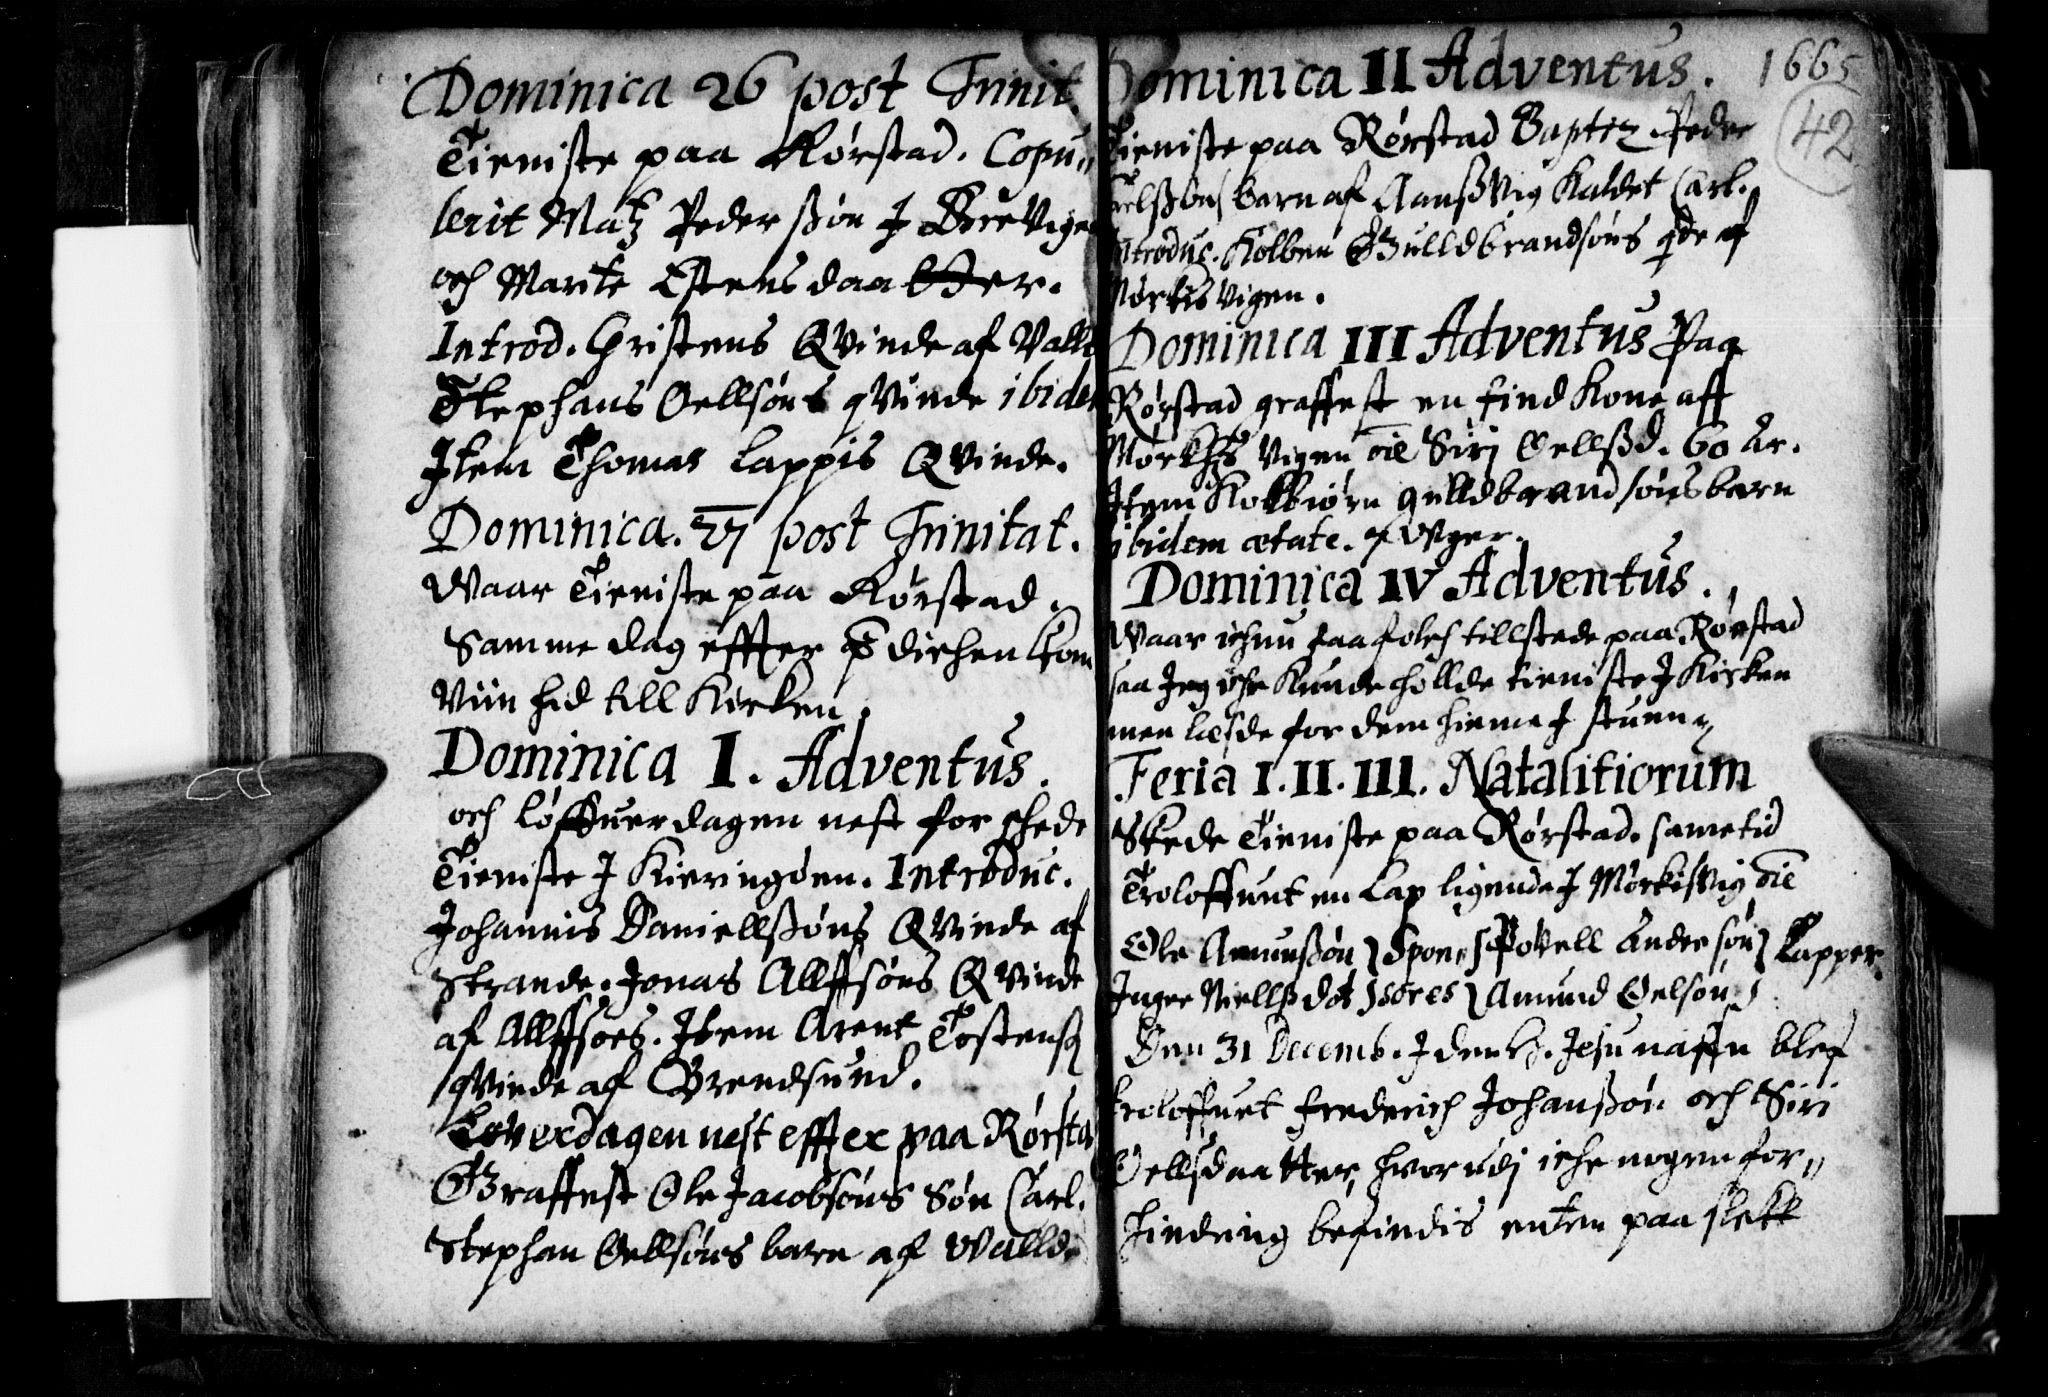 Dominica 26 post Trinit.
Tieniste paa Rørstad. Copu„
lerit Matz Pederssøn J
och Marite Estensdaatter.
Introd. Christens Qvinde af Valle
Stephans Oellsøns qvinde ibidem
Item Thomas Lappis Qvinde.
Dominica. 27 post Trinitat.
Waar Tieniste paa Rørstad.
Samme dag effter dichen kom
Viin hid till Kirken.
Dominica I. Adventus.
och løffuerdagen nest for schede
Tieniste J Kieringøen. Introduc.
Johannis Daniellssøns Qvinde af
Strande. Jonas Allffsøns Qvinde
af Allffsoes. Item Arent Tostensøns
qvinde af Grendsund.
Løverdagen nest effter paa Rørstad
Graffest Ole Jacobsøns Søn Carl.
Stephan Oellsøns barn af Wallde
Dominica II Adventus. 1665
42
Tieniste paa Rørstad Baptiz. Peder
barn af Aanssvig Kaldet Carl.
Introduc. Kolben Gulldbrandsøns qde af
Mørkisvigen.
Dominica III Adventus Paa
Rørstad graffest en find Kone aff
Mørkhis vigen ōie Siri Oellssd. 60 Aar.
Item Kolbiørn gulldbrandsøns barn
ibidem ætate. 7 Vger.
Dominica IV Adventus.
Waar ichun faa folch tillstede paa Rørstad
saa Jeg iche kunde hollde tieniste J Kirken
men læsde for dem hieme J stuen
Feria I. II. III. Natalitiorum
Skede Tieniste paa Rørstad. sametid
Troloffunt en Lap ligende J Mørkisvig ōie
Ole Amunssøn } Spon„ { Povell Andersøn } Lapper.
Inger Niellssdot } sores } Amund Oelsøn }
Den 31 Decemb. J den H. Jesu naffn blef
troloffuet Frederich Johanssøn och Siri
Oellsdaatter, hvorudj iche nogen for„
hindring befindis enten paa slekt